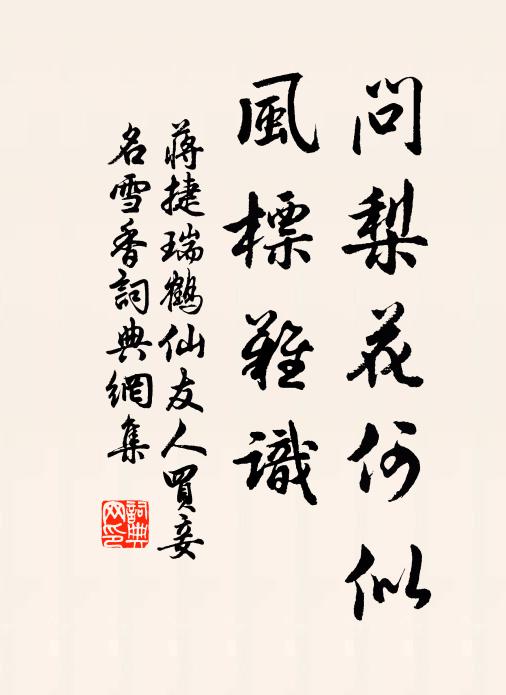 問梨花何似
風標難識
蔣捷瑞鶴仙友人買妾
名雪香詞典網集
詞典
网印